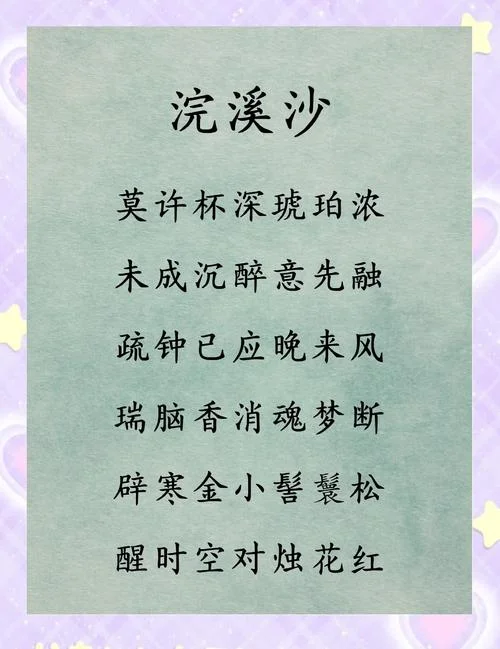 浣溪沙
莫许杯深琥珀浓
未成沉醉意先融
疏钟已应晚来风
瑞脑香消魂梦断
辟寒金小髻鬟松
醒时空对烛花红